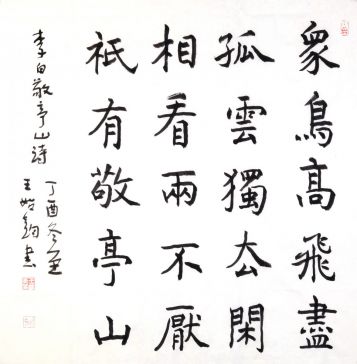 眾鳥高飛盡
孤雲獨去閑
相看兩不厭
祇有敬亭山
李白敬亭山詩
丁酉冬至
王
書